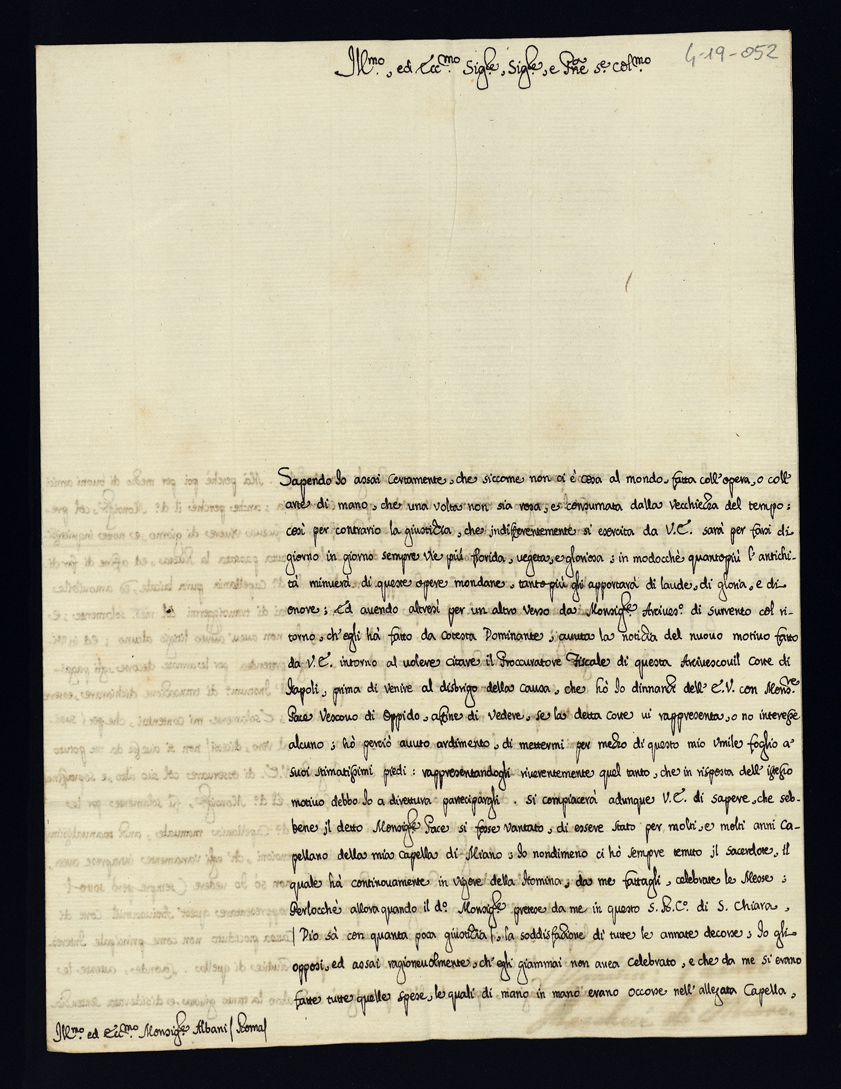 4-19-052
Ill.mo, ed Ecc.mo Sig.re, Sig.re, e Pñe S.e Col.mo
Sapendo Io assai certamente, che siccome non ci è cosa al mondo, fatta coll'opera, o coll'
arte di mano, che una volta non sia rosa, e consumata dalla Vecchiezza del tempo;
così per contrario la giustizia, che indifferentemente si esercita da V.E. sarà per farsi di
giorno in giorno sempre vie più florida, vegeta, e gloriosa; in modocchè quanto più l'antichi-
tà minuerà di queste opere mondane, tanto più gli apportarà di laude, di gloria, e di
onore; Ed avendo altresì per un altro verso da Monsig.re Arcives.o di Surrento col ri-
torno, ch'egli hà fatto da cotesta Dominante, avuta la notizia del nuovo motivo fatto
da V.E. intorno al volere citare il Proccuratore Fiscale di questa Arcivescovil Corte di
Napoli, prima di venire al disbrigo della causa, che hò Io dinnanzi dell'E.V. con Mons.re
Pace Vescovo di Oppido, affine di vedere, se la detta Corte vi rappresenta, o no interesse
alcuno; hò perciò avuto ardimento, di mettermi per mezzo di questo mio umile foglio a'
suoi stimatissimi piedi: rappresentandogli riverentemente quel tanto, che in risposta dell'istesso
motivo debbo Io a direttura partecipargli. Si compiacerà adunque V.E. di sapere, che seb-
bene il detto Monsig.re Pace si fosse vantato, di essere stato per molti, e molti anni Ca-
pellano della mia Capella di Miano; Io nondimeno ci hò sempre tenuto il sacerdote, il
quale hà continovamente in vigore della Nomina, da me fattagli, celebrate le Messe;
Perlocchè allora quando il d.o Monsig.re pretese da me in questo S.R.C.o di S. Chiara,
| Dio sà con quanta poca giustizia |, la soddisfazione di tutte le annate decorse; Io gli
opposi, ed assai ragionevolmente, ch'egli giammai non avea Celebrato, e che da me si erano
fatte tutte quelle spese, le quali di mano in mano erano occorse nell'allegata Capella,
Ill.mo ed Ecc.mo Monsig.re Albani | Roma |